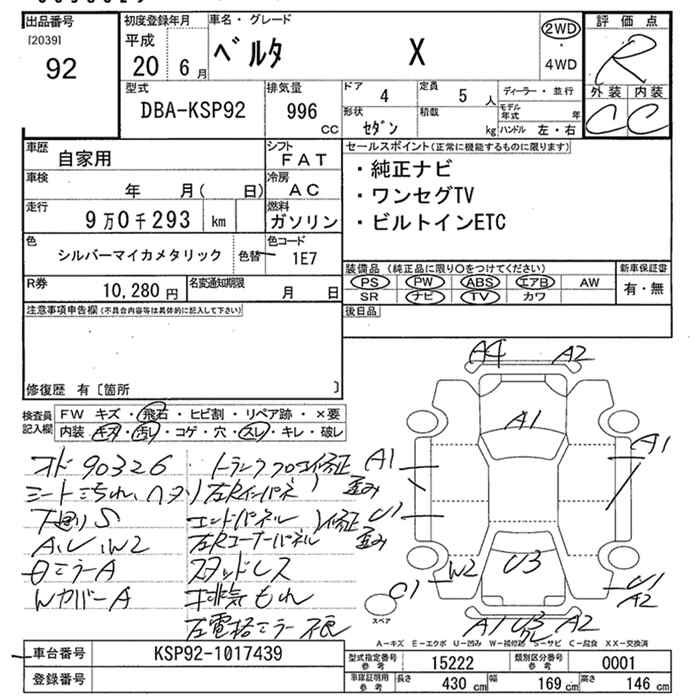 出品番号
[2039]
92
初度登録年月
平成
20 6 月
車名・グレード
ベルタ X
2WD
・
4WD
評価点
R
外装 内装
C C
型式
DBA-KSP92
排気量
996
CC
ドア 4
定員 5 人
形状 セダン
積載 kg
ディーラー・並行
モデル年式 年
ハンドル 左・右
車歴
自家用
シフト
FAT
車検
年 月( 日)
冷房
AC
走行
9万0千293 km
燃料
ガソリン
色
シルバーマイカメタリック
色替
色コード
1E7
R券
10,280 円
名変通知期限
月 日
セールスポイント(正常に機能するものに限ります)
・純正ナビ
・ワンセグTV
・ビルトインETC
装備品 (純正品に限り○をつけてください)
PS PW ABS エアB AW
SR ナビ TV カワ
新車保証書
有・無
後日品
注意事項申告欄(不具合内容等は具体的に記入して下さい)
修復歴 有〔箇所 〕
検査員
記入欄
FW キズ・飛石・ヒビ割・リペア跡・×要
内装 キズ・汚れ・コゲ・穴・スレ・キレ・破レ
オド 90326
シートよごれ、ヘタリ
下廻りS
A、U、W2
ミラーA
WカバーA
トランクフロア修正
左Rインパネ
エンドパネル
修正
歪み
左Rコーナーパネル
歪み
スタッドレス
排気もれ
左電格ミラー不良
A4 A2
A1
A1
A1
U1
W2
U3
C1
U1
A2
A1 U3 A2
スペア
A-キズ E-エクボ U-凹み W-補修跡 S-サビ C-腐食 XX-交換済
車台番号
KSP92-1017439
登録番号
型式指定番号
参考
15222
類別区分番号
参考
0001
車庫証明用
参考
長さ 430 cm
幅 169 cm
高さ 146 cm